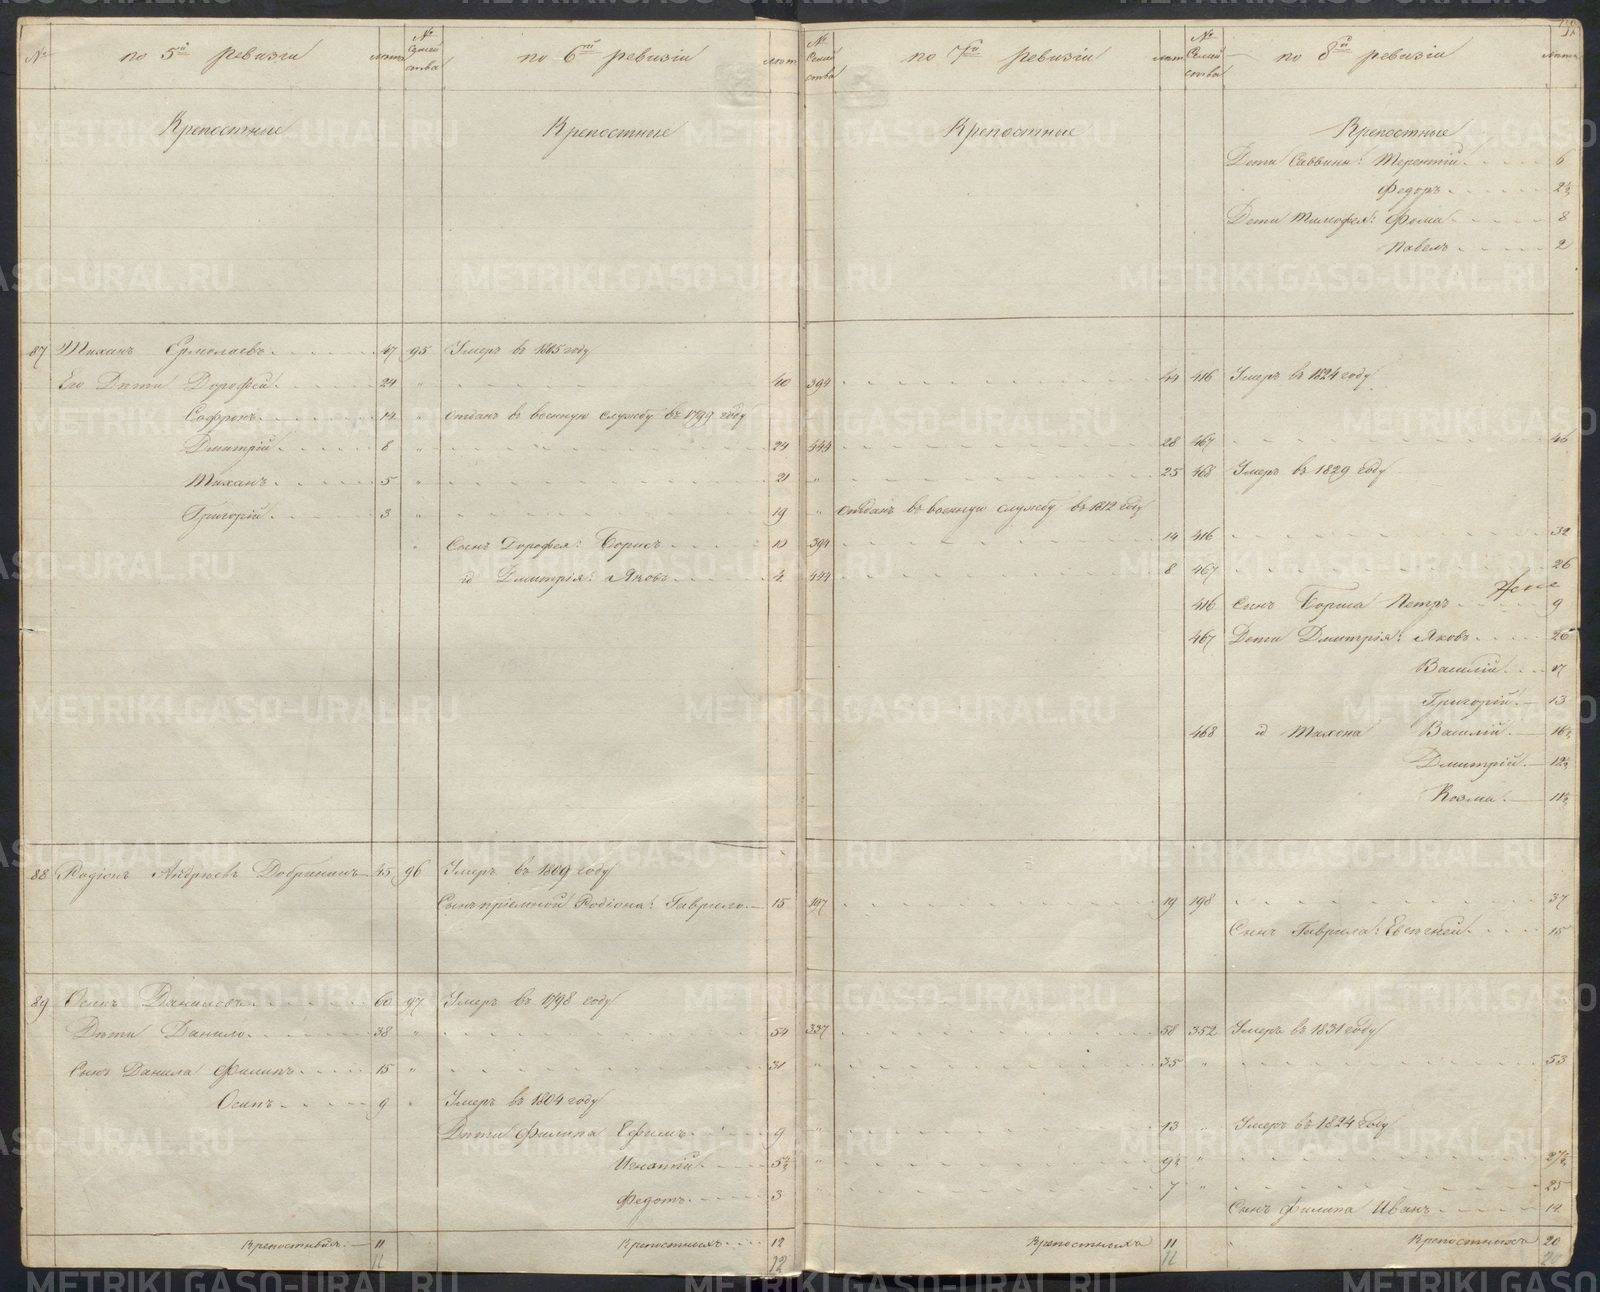 № по 5й ревизіи лѣтъ № Семей ства по 6й ревизіи лѣтъ № Семей ства по 7й ревизіи лѣтъ № Семей ства по 8й ревизіи лѣтъ
Крепостные Крепостные Крепостные Крепостные
Дети Саввины: Терентій 6
Федоръ 2½
Дети Тимофея: Фома 8
Павелъ 2
87 Тиханъ Ермолаевъ 47 95 Умеръ въ 1805 году
Его Дѣти Дорофей 24 " 40 394 44 416 Умеръ въ 1824 году
Софронъ 14 " отданъ въ военную службу въ 1799 году
Дмитрій 8 " 24 444 28 467 46
Тиханъ 5 " 21 " 25 468 Умеръ въ 1829 году
Григорій 3 " 19 " отданъ въ военную службу въ 1812 году
" Сынъ Дорофея: Борисъ 10 394 14 416 32
id Дмитрія: Яковъ 4 444 8 467 26
416 Сынъ Бориса Петръ 9
467 Дети Дмитрія: Яковъ 26
Василій 17
Григорій 13
468 id Тихона Василій 16½
Дмитрій 12½
Козма 11½
88 Родіонъ Андреевъ Добрынинъ 45 96 Умеръ въ 1809 году
Сынъ пріемной Родіона: Гаврило 15 197 19 198 37
Сынъ Гаврила: Евсегней 15
89 Осипъ Даниловъ 60 97 Умеръ въ 1798 году
Дѣти Данило 38 " 54 337 58 352 Умеръ въ 1831 году
Сынъ Данила Филипъ 15 " 31 " 35 " 53
Осипъ 9 " Умеръ въ 1804 году
Дѣти Филипа Ефимъ 9 " 13 " Умеръ въ 1824 году
Игнатій 5½ " 9½ " 27½
Федотъ 3 " 7 " 25
Сынъ Филипа Иванъ 14
Крепостныхъ 11 Крепостныхъ 12 Крепостныхъ 11 Крепостныхъ 20
11 12 11 20
METRIKI.GASO-URAL.RU